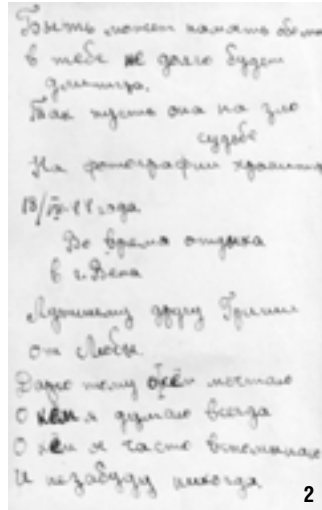 Быть может память обо мн
в тебе не долго будет
длиться.
Так пусть она на зло
судьбе
На фотографии хранится
18/IX-44 года
Во время отдыха
в г. Вена
Лучшему другу Гриши
от Любы.
Дарю тому о кём мечтаю
О кем я думаю всегда
О кем я часто вспоминаю
И незабуду никогда
2